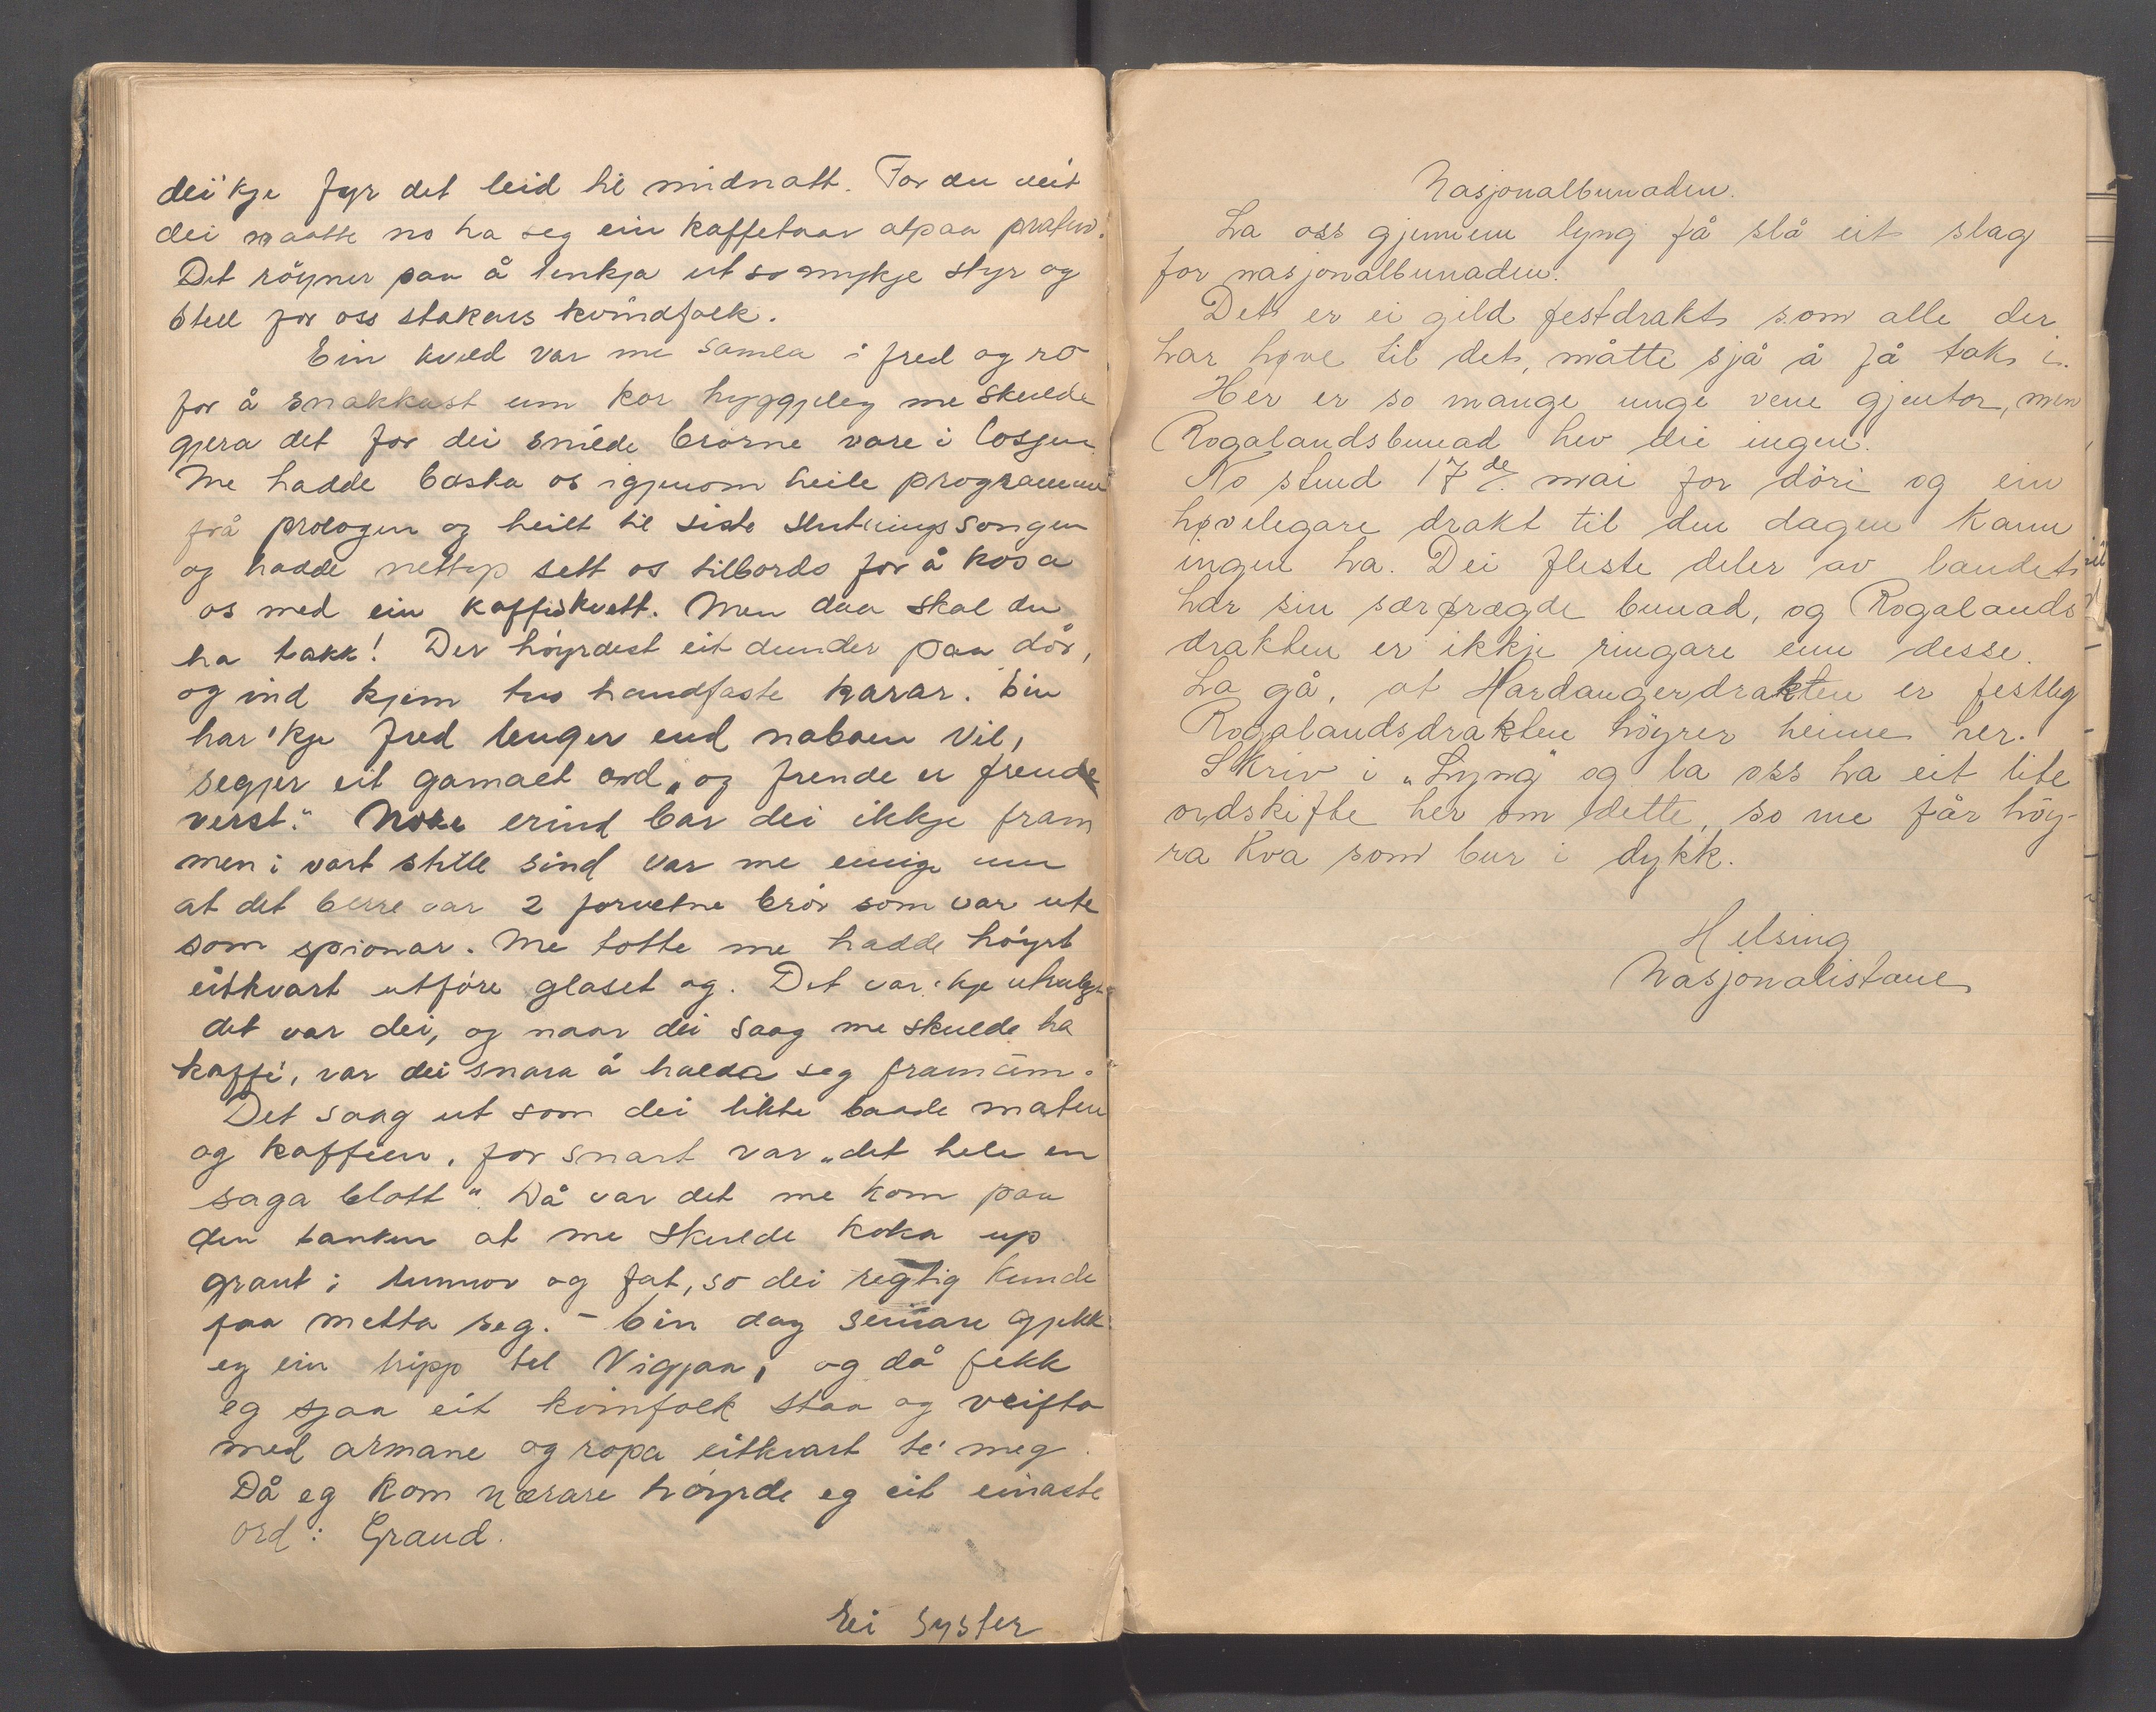 dei'kje fyr det leid til midnatt. For du veit
dei maatte no ha seg ein kaffetaar atpaa praten.
Det röyner paa å tenkja ut so mykje styr og
stell for oss stakars kvindfolk.
Ein kveld var me samla i fred og ro
for å snakkast um kor hyggjeleg me skulde
gjera det for dei snilde brörne vare i losjen.
Me hadde baska os igjenom heile programme
frå prologen og heilt til siste slutningssongen
og hadde nettup sett os tilbords for å kosa
os med ein kaffiskvett. Men daa skal du
ha takk! Der höyrdest eit dunder paa dör,
og ind kjem tvo handfaste karar. Ein
har'kje fred lenger end naboen vil,
segjer eit gamalt ord „og frende er frende
verst." Noke erind bar dei ikkje fram
men i vart stille sind var me einige um
at det berre var 2 forvetne brör som var ute
som spionar. Me totte me hadde höyrt
eitkvart utföre glaset og. Det var'kje utrulegt
det var dei, og naar dei saag me skulde ha
kaffi, var dei snara å halda seg framum.
Det saag ut som dei likte baade maten
og kaffien, for snart var „det hele en
saga blott". Då var det me kom paa
den tanken at me skulde koka up
graut i tunnor og fat, so dei regtig kunde
faa metta seg. – Ein dag seinare gjekk
eg ein tripp til Vigjaa, og då fekk
eg sjaa eit kvinfolk staa og veifta
med armane og ropa eitkvart te' meg.
Då eg kom nærare höyrde eg eit einaste
ord: Graud.
Ei syster
Nasjonalbunaden.
La oss gjennem lyng få slå eit slag
for nasjonalbunaden.
Det er ei gild festdrakt som alle der
har høve til det, måtte sjå å få tak i.
Her er so mange unge vene gjentor, men
Rogalandsbunad hev dei ingen.
No stund 17de mai for döri og ein
høvelegare drakt til den dagen kann
ingen ha. Dei fleste deler av landet
har sin særprægde bunad, og Rogalands
drakten er ikkje ringare enn desse.
La gå, at Hardangerdrakten er festleg
Rogalandsdrakten höyrer heime her.
Skriv i „Lyng" og la oss ha eit lite
ordskifte her om dette, so me får höy-
ra kva som bur i dykk.
Helsing
Nasjonalistane